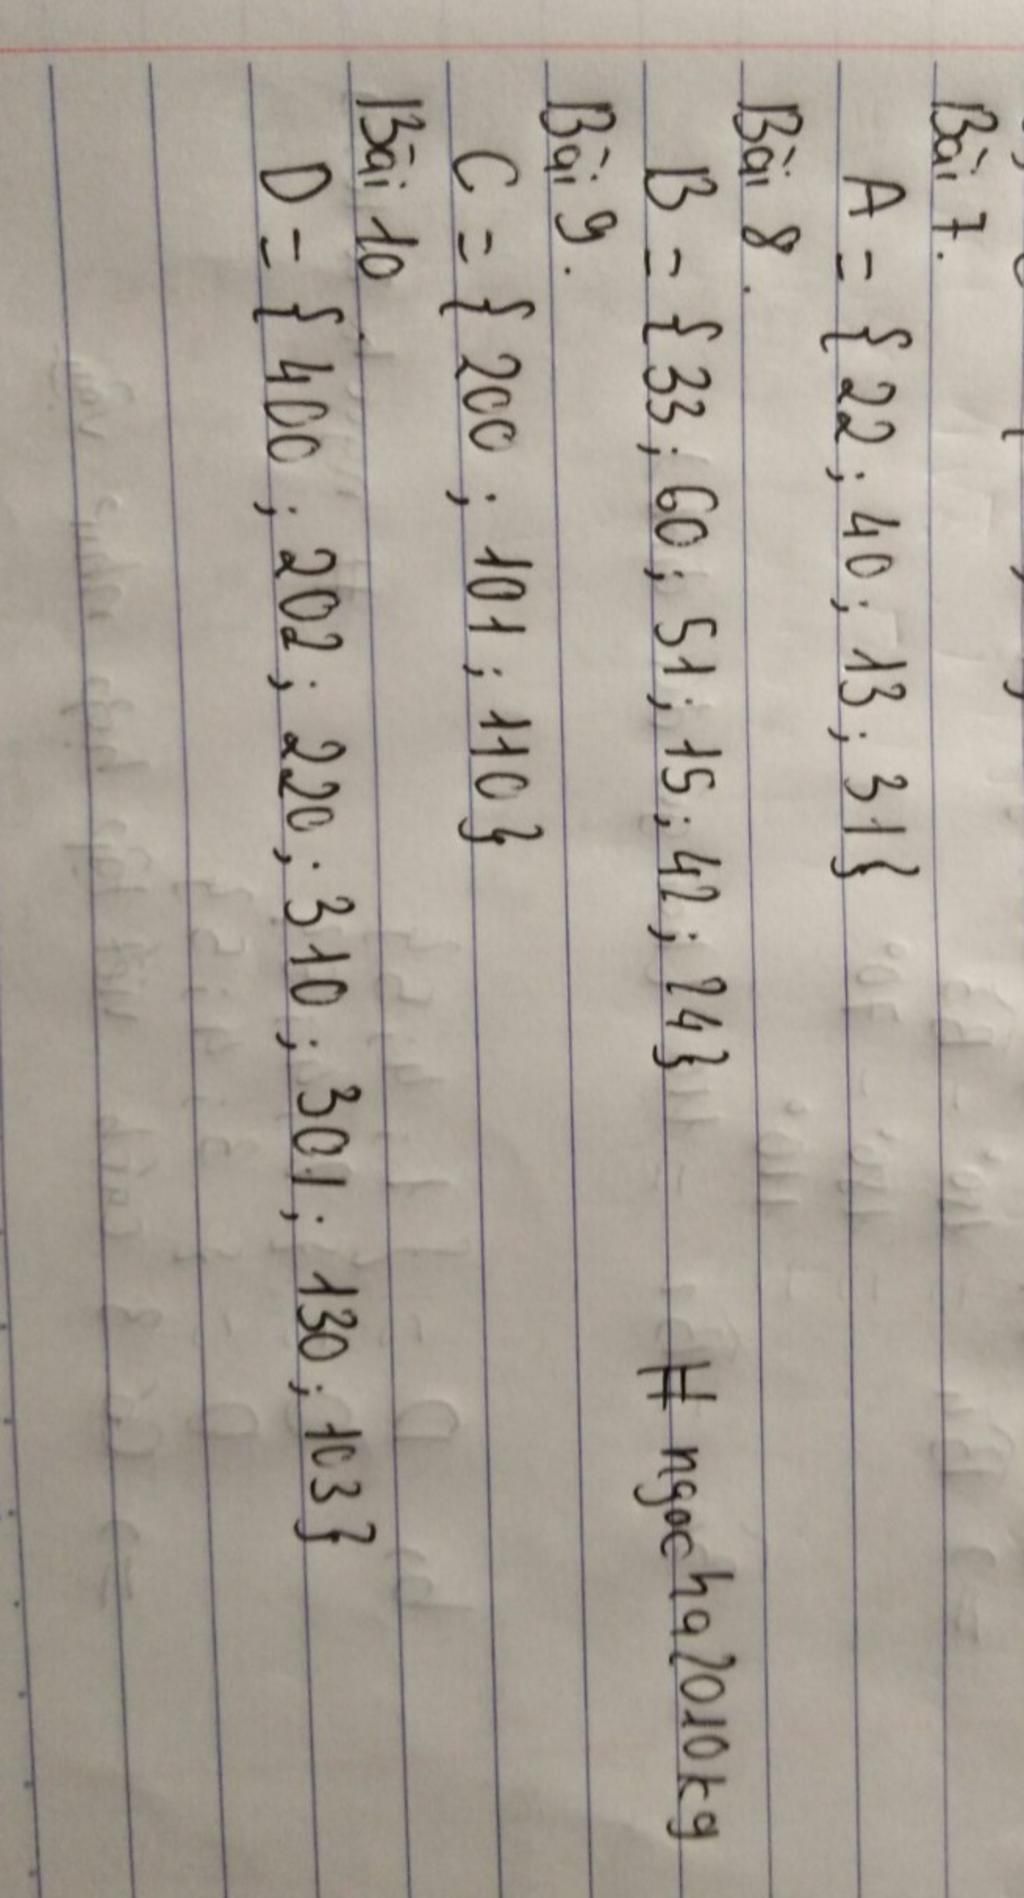 Bài 7.
A = {22; 40; 13; 31}
Bài 8.
B = {33; 60; 51; 15; 42; 24} # ngocha2010kg
Bài 9.
C = {200; 101; 110}
Bài 10.
D = {400; 202; 220; 310; 301; 130; 103}